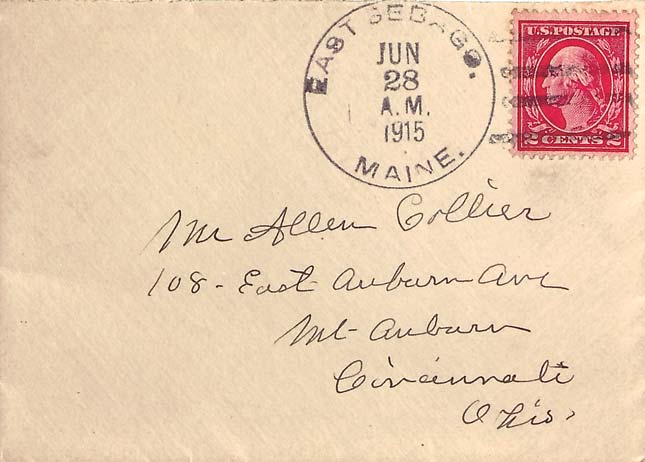 EAST SEBAGO.
JUN
28
A.M.
1915
MAINE.
U.S. POSTAGE
2 CENTS 2
Mr Allen Collier
108 - East Auburn Ave
Mt - Auburn
Cincinnati
Ohio.